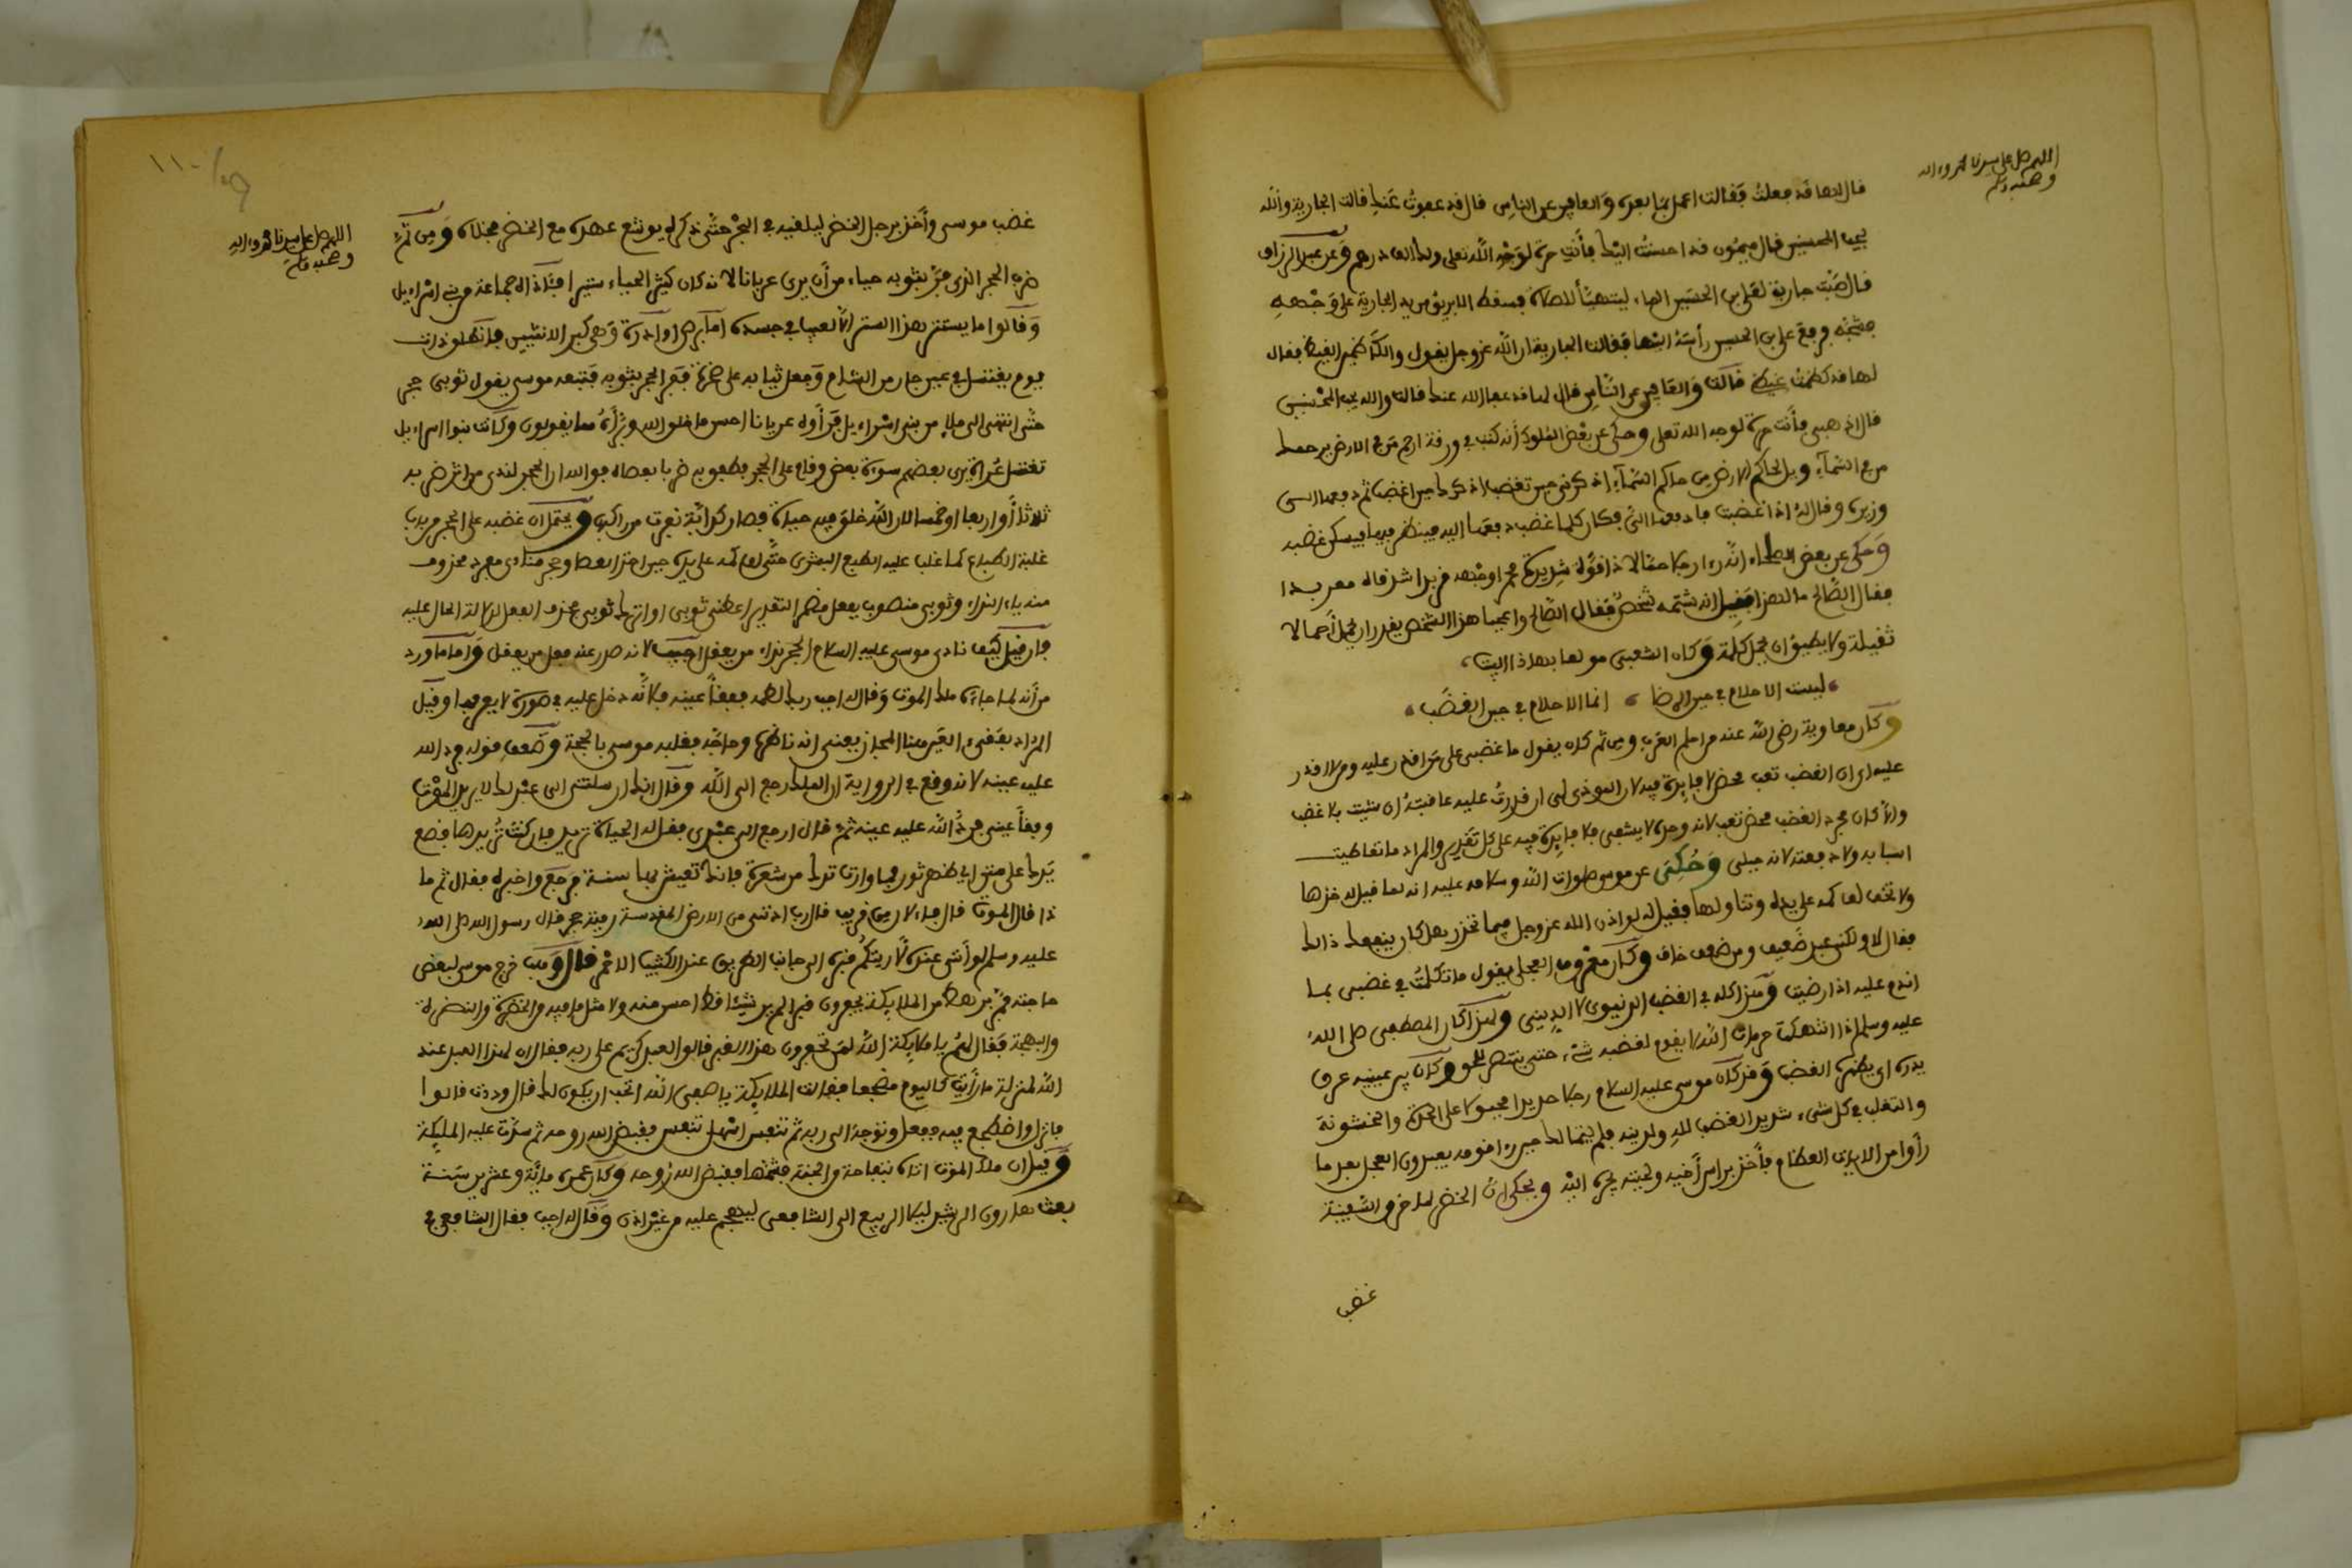 اللهم صل على سيدنا محمد وءاله
وصحبه وسلم
قال لها قد فعلت فقالت اعمل بما بعده والعافين عن الناس قال قد عفوت عنك قالت الجارية والله
يحب المحسنين قال ميمون قد احسنت اليك فأنت حرة لوجه الله تعلى ولك الف درهم وعن عبد الرزاق
قال صبت جارية لعلي بن الحسين الماء ليتهيأ للصلاة فسقط الابريق من يد الجارية على وجهه
فشجه فرفع علي بن الحسين رأسه اليها فقالت الجارية ان الله عزوجل يقول والكاظمين الغيظ فقال
لها قد كظمت غيظي قالت والعافين عن الناس قال لها قد عفا الله عنك قالت والله يحب المحسنين
قال اذهبي فأنت حرة لوجه الله تعلى وحكي عن بعض الملوك أنه كتب في ورقة ارحم من في الارض يرحمك
من في السماء ويل لحاكم الارض من حاكم السماء اذكرني حين تغضب اذكرك حين اغضب ثم دفعها الى
وزيره وقال له اذا غضبت فادفعها الي فكان كلما غضب دفعها اليه فينظر فيها فيسكن غضبه
وحكي عن بعض العلماء انه رءا رجلا حمالا ذا قوة شديدة محمر اوجهه مزبدا شدقاه معربدا
فقال الصالح ما لهذا فقيل انه شتمه شخص فقال الصالح واعجبا هذا الشخص يقدر ان يحمل أحمالا
ثقيلة ولا يطيق ان يحمل كلمة وكان الشعبي مولعا بهذا البيت
ليست الاحلام في حين الرضا انما الاحلام في حين الغضب
وكان معاوية رضي الله عنه من احلم العرب ومن ثم كان يقول ما غضبي على من اقدر عليه ومن لا اقدر
عليه اي ان الغضب تعب محض لا فايدة فيه لان الموذي لي ان قدرت عليه عاقبته ان شيت بلا غضب
والا كان مجرد الغضب محض تعب لانه وحده لا يشفي فلا فايدة فيه على كل تقدير والمراد ما تعاطيت
اسبابه ولا دفعته لانه جبلي وحكي عن موسى صلوات الله وسلامه عليه انه لما قيل له خذها
ولا تخف لف كمه على يده وتناولها فقيل له لو اذن الله عزوجل فيما تحذر هل كان ينفعك ذالك
فقال لا ولكني عبد ضعيف ومن ضعف خاف وكان مغروف العجلي يقول ما تكلمت في غضبي بما
اندم عليه اذا رضيت وهذا كله في الغضب الدنيوي لا الديني ولهذا كان المصطفى صلى الله
عليه وسلم اذا انتهكت حرمات الله لا يقوم لغضبه شيء حتى ينتصر للحق وكان بين عينيه عرق
يدره اي يظهره الغضب وقد كان موسى عليه السلام رجلا حديدا مجبولا على الحدة والخشونة
والتغلب في كل شيء شديد الغضب لله ولدينه فلم يتمالك حين رءا قومه يعبدون العجل بعد ما
رأوا من الايات العظام فأخذ براس أخيه ولحيته يجره اليه ويحكى ان الخضر لما خرق السفينة
غضب
١١٠
اللهم صل على سيدنا محمد وءاله
وصحبه وسلم
غضب موسى وأخذ برجل الخضر ليلقيه في البحر حتى ذكره يوشع عهده مع الخضر فخلاه ومن ثم
ضرب الحجر الذي فر بثوبه حياء من أن يرى عريانا لانه كان كثير الحياء ستيرا فآذاه جماعة من بني اسراءيل
وقالوا ما يستتر هذا الستر الا لعيب في جسده اما برص او ادرة وهي كبر الانثيين فانطلق ذات
يوم يغتسل في عين جار من الشام وجعل ثيابه على صخرة ففر الحجر بثوبه فتبعه موسى يقول ثوبي حجر
حتى انتهى الى ملإ من بني اسراءيل فرأوه عريانا احسن ما خلق الله وبرأه مما يقولون وكانت بنوا اسراءيل
تغتسل عراة يرى بعضهم سوءة بعض وقام على الحجر فطفق به ضربا بعصاه فوالله ان الحجر لندى من اثر ضربه
ثلاثا أو اربعا او خمسا لان الله خلق فيه حياة فصار كدابة نفرت من راكب ويحتمل ان غضبه على الحجر من باب
غلبة الطباع كما غلب عليه الطبع البشري حتى لف كمه على يده حين اخذ العصا وحجر منادى مفرد محذوف
منه ياء النداء وثوبي منصوب بفعل مضمر التقدير اعطني ثوبي او اترك ثوبي فحذف الفعل لدلالة الحال عليه
فان قيل كيف نادى موسى عليه السلام الحجر نداء من يعقل اجيب لانه صدر عنه فعل من يعقل واما ما ورد
من أنه لما جاءه ملك الموت وقال له اجب ربك لطمه ففقأ عينه فلانه دخل عليه في صورة لا يعرفها وقيل
المراد بفقء العين هنا المجاز يعني انه ناظره وحاجه فغلبه موسى بالحجة وضعف قوله فرد الله
عليه عينه لانه وقع في الرواية ان الملك رجع الى الله وقال انك ارسلتني الى عبد لك لا يريد الموت
وفقأ عيني فرد الله عليه عينه ثم قال ارجع الى عبدي فقل له الحياة تريد فان كنت تريدها فضع
يدك على متن اي ظهر ثور فما وارت يدك من شعرة فانك تعيش بها سنة فرجع واخبره فقال ثم ما
ذا قال الموت قال فالآن من قريب قال رب ادنني من الارض المقدسة رمية بحجر قال رسول الله صلى الله
عليه وسلم لو أني عنده لأريتكم قبره الى جانب الطريق عند الكثيب الاحمر قال وهب خرج موسى لبعض
حاجته فمر برهط من الملايكة يحفرون قبرا لم ير شيئا قط احسن منه ولا مثل ما فيه من الخضرة والنضرة
والبهجة فقال لهم يا ملايكة الله لمن تحفرون هذا القبر قالوا لعبد كريم على ربه فقال ان لهذا العبد عند
الله لمنزلة ما رأيت كاليوم مضجعا فقالت الملايكة يا صفي الله اتحب ان يكون لك قال وددت قالوا
فانزل واضطجع فيه ففعل وتوجه الى ربه ثم تنفس اسهل تنفس فقبض الله روحه ثم سوت عليه الملايكة
وقيل ان ملك الموت اتاه بتفاحة من الجنة فشمها فقبض الله روحه وكان عمره مائة وعشرين سنة
بعث هارون الرشيد ليلا الربيع الى الشافعي ليهجم عليه من غير اذن وقال له اجب فقال الشافعي في